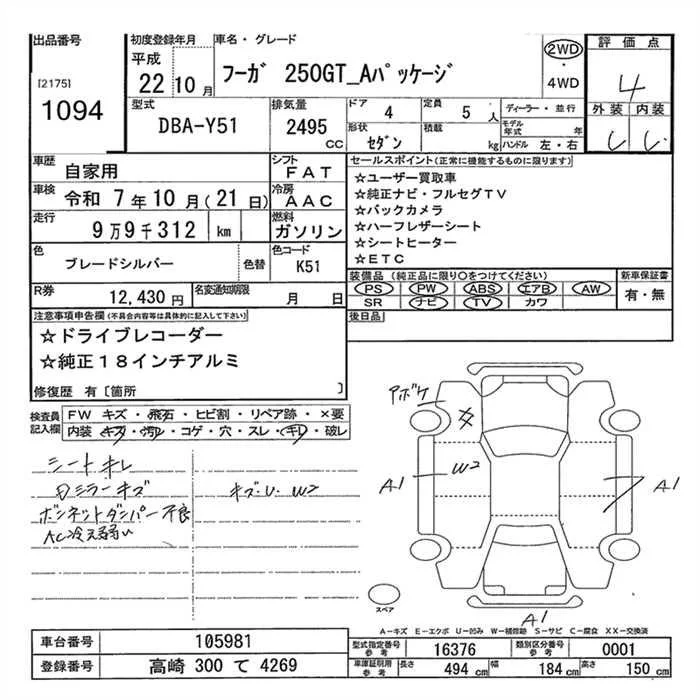 出品番号
[2175]
1094
初度登録年月
平成
22年 10月
車名・グレード
フーガ 250GT_Aパッケージ
2WD
・
4WD
評価点
4
外装 内装
型式
DBA-Y51
排気量
2495
CC
ドア
4
定員
5 人
ディーラー・並行
形状
セダン
積載
kg
モデル年式 年
ハンドル 左・右
車歴
自家用
シフト
FAT
車検
令和 7年10月(21日)
冷房
AAC
走行
9万9千312 km
燃料
ガソリン
色
ブレードシルバー
色替
色コード
K51
R券
12,430円
名変通知期限
月 日
セールスポイント(正常に機能するものに限ります)
☆ユーザー買取車
☆純正ナビ・フルセグTV
☆バックカメラ
☆ハーフレザーシート
☆シートヒーター
☆ETC
装備品 (純正品に限り○をつけてください)
新車保証書
PS PW ABS エアB AW
SR ナビ TV カワ
有・無
後日品
注意事項申告欄(不具合内容等は具体的に記入して下さい)
☆ドライブレコーダー
☆純正18インチアルミ
修復歴 有〔箇所 〕
検査員
記入欄
FW キズ・飛石・ヒビ割・リペア跡・×要
内装 キズ・汚レ・コゲ・穴・スレ・キレ・破レ
シートキレ
ミラーキズ
キズ・U・W2
ボンネットダンパー不良
AC冷え弱い
アボケ
A1
W2
A1
A1
スペア
A-キズ E-エクボ U-凹み W-補修跡 S-サビ C-腐食 XX-交換済
車台番号
105981
登録番号
高崎 300 て 4269
型式指定番号
参考
16376
類別区分番号
参考
0001
車庫証明用
参考
長さ
494 cm
幅
184 cm
高さ
150 cm